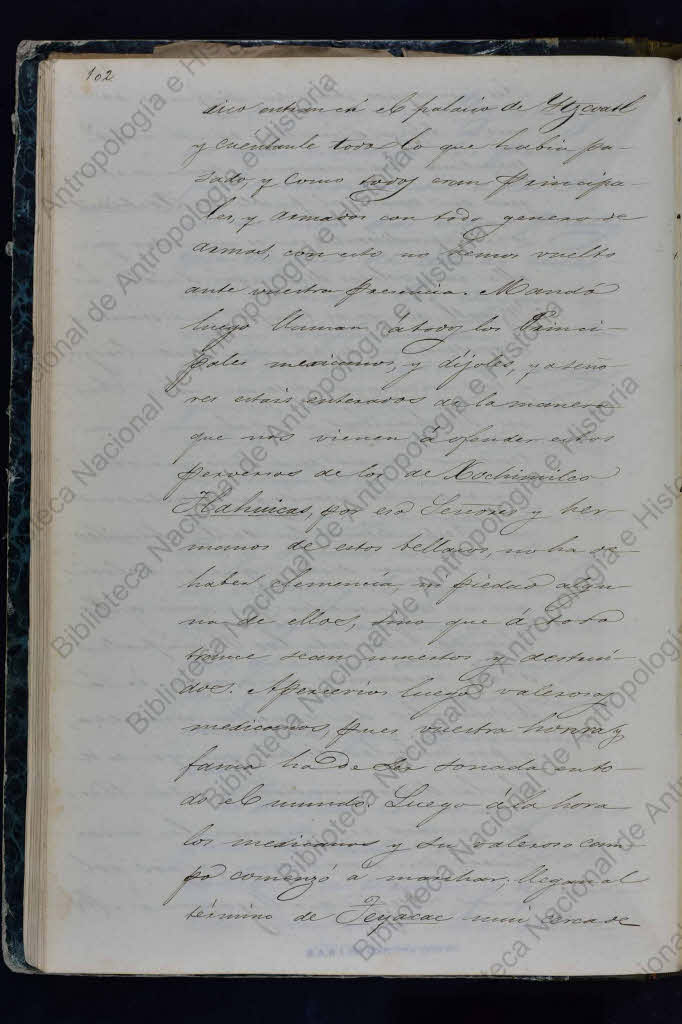 102
sico entran en el palacio de Ytzcoatl
y cuentanle todo lo que habia pa-
sado, y como todos eran Principa-
les, y armados con todo genero de
armas, con esto no hemos vuelto
ante vuestra presencia. Mandó
luego llamar á todos los Princi-
pales mexicanos, y díjoles, ya seño-
res estais enterados de la manera
que nos vienen á ofender estos
perversos de los de Xochimilco
Nahuicas, por eso Señores y her-
manos de estos bellacos, no ha de
haber clemencia, ni piedad algu-
na de ellos, sino que á todo
trance sean muertos y destrui-
dos. Apercevios luego valerosos
mexicanos, pues vuestra honra y
fama ha de ser sonada en to-
do el mundo. Luego á la hora
los mexicanos y su valeroso cam-
po comenzó a marchar, llegan al
término de Teyacac mui cerca de
Biblioteca Nacional de Antropología e Historia